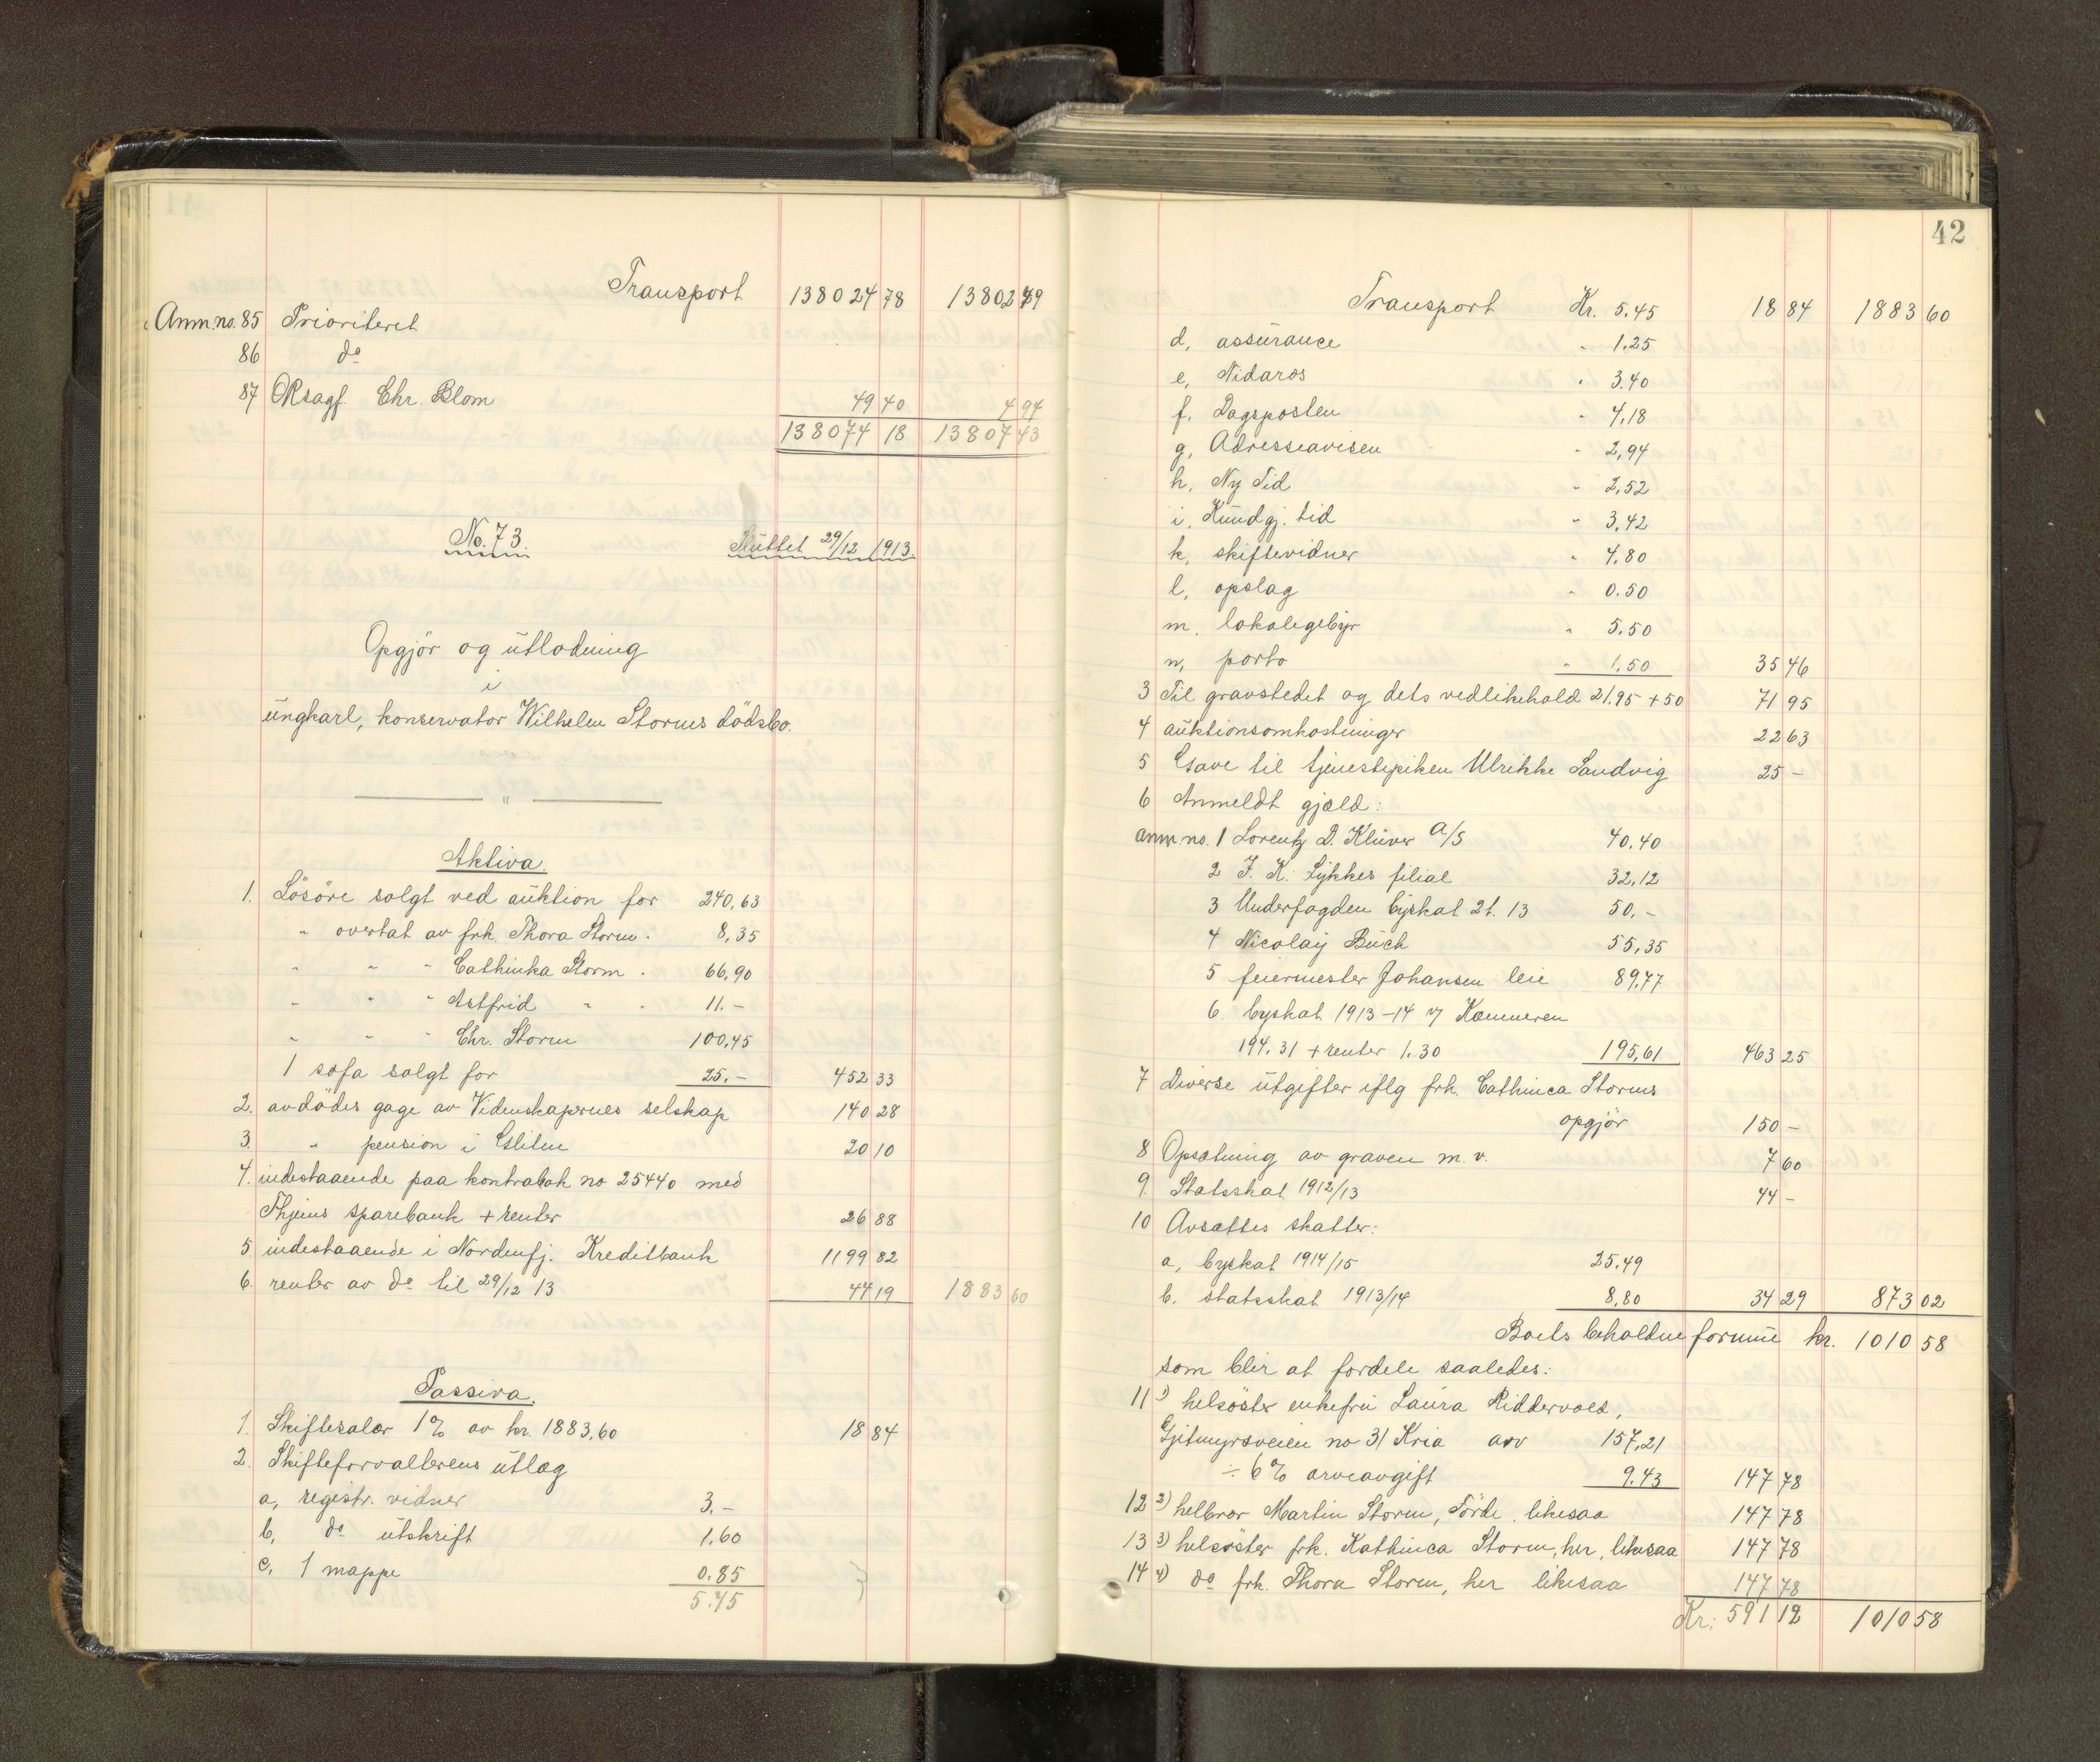 Transport 138024 78 13802 49
Anm. no. 85 Prioritert
86 do
87 ORsagf. Chr. Blom 49 40 4 94
138074 18 13807 43
No. 73. Sluttet 29/12 1913.
Opgjör og utlodning
i
ungkarl, konservator Wilhelm Storms dödsbo.
Aktiva.
1. Lösöre solgt ved auktion for 240,63
" overtat av frk. Thora Storm " 8,35
" " " Cathinka Storm " 66,90
" " " Astfrid " " 11.-
" " " Chr. Storm 100,45
1 sofa solgt for 25.- 452 33
2. avdödes gage av Videnskapernes selskap 140 28
3. " pension i 20 10
4. indestaaende paa kontrabok no 25440 med
Thjems sparebank + renter 26 88
5. indestaaende i Nordenfj. Kreditbank 1199 82
6. renter av do til 29/12 13 44 19 1883 60
Passiva.
1. Skiftesalær 1% av kr. 1883,60 18 84
2. Skifteforvalterens utlæg
a, registr. vidner 3,-
b, do utskrift 1,60
c, 1 mappe 0.85
5.45
42
Transport Kr. 5.45 18 84 1883 60
d, assurance " 1.25
e, Nidaros " 3.40
f, Dagsposten " 4,18
g, Adresseavisen " 2,94
h, Ny Tid " 2,52
i, Kundgj. tid " 3,42
k, skiftevidner " 4,80
l, opslag " 0.50
m. lokalegebyr " 5.50
n, porto " 1.50 35 46
3 Til gravstedet og dets vedlikehold 21.95 + 50 71 95
4 auktionsomkostninger 22 63
5 Gave til tjenestepiken Ulrikke Sandvig 25 -
6 Anmeldt gjæld:
anm. no. 1 Lorentz D. Klüver A/S 40,40
2 J. K. Lykkes filial 32,12
3 Underfogden byskat 2t. 13 50,-
4 Nicolay Buch 55,35
5 feiermester Johansen leie 89,77
6. byskat 1913-14 Kæmneren
194.31 + renter 1.30 195,61 463 25
7 Diverse utgifter iflg frk. Cathinca Storms
opgjör 150 -
8 Opsætning av graven m. v. 7 60
9. Statsskat 1912/13 44 -
10 Avsættes skatter:
a, byskat 1914/15 25.49
b. statsskat 1913/14 8,80 34 29 873 02
Boets beholdne formue kr. 1010 58
som blir at fordele saaledes:
11 1) helsöster enkefru Laura Riddervold,
Gjitmyrsveien no 31 Kria arv 157,21
÷ 6% arveavgift 9.43 147 78
12 2) helbror Martin Storm, Förde, likesaa 147 78
13 3) helsöster frk. Kathinca Storm, her, likesaa 147 78
14 4) do frk. Thora Storm, her likesaa 147 78
Kr. 591 12 1010 58